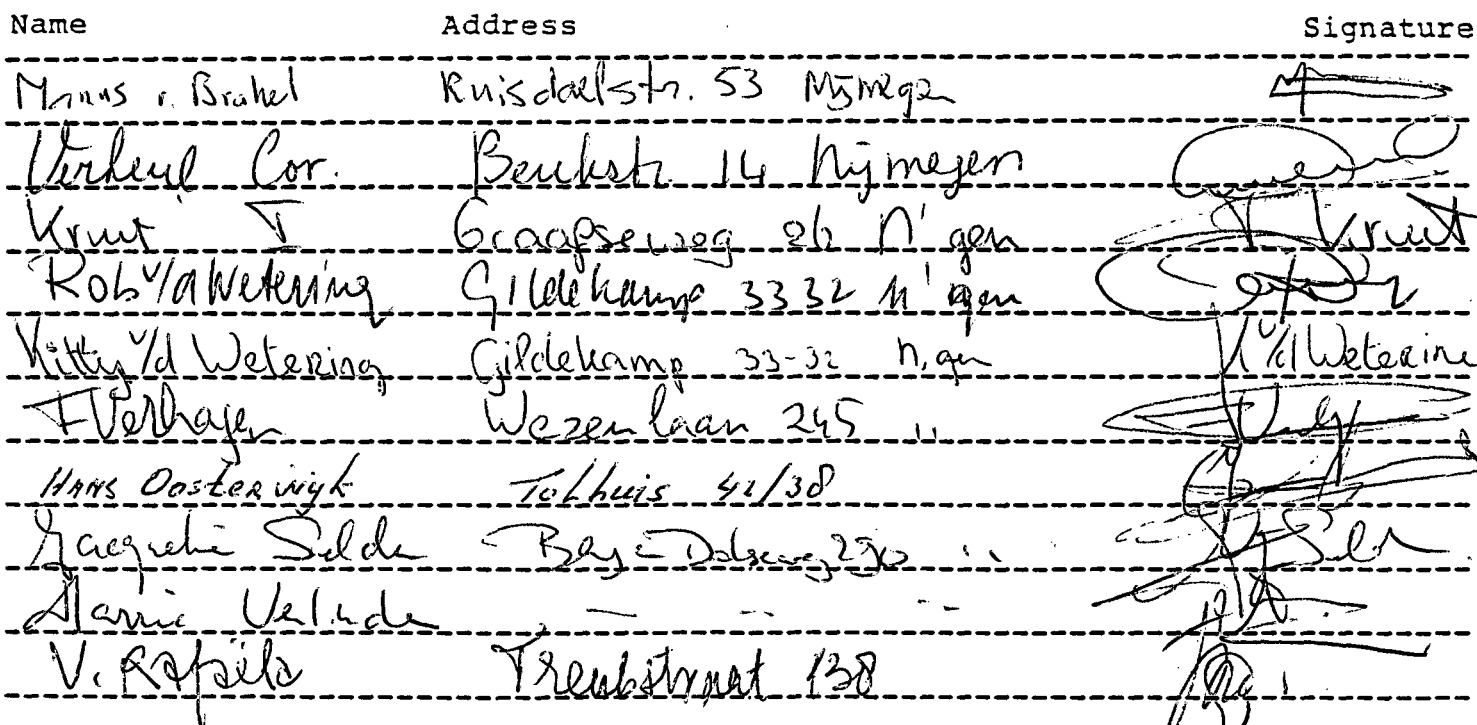 Name Address Signature
Manus v. Brakel Ruisdaelstr. 53 Nijmegen
Verheul Cor. Beukstr. 14 Nijmegen
Kruit T Graafseweg 2b N'gen T Kruit
Rob v/d Wetering Gildekamp 3332 N'gen
Kitty v/d Wetering Gildekamp 33-32 N.gen K v/d Wetering
F Verhagen Wezenlaan 245 ,,
HANS Oosterwijk Tolhuis 42/38
Selde 290 ,,
Harrie
V. Rafaela Treubstraat 138